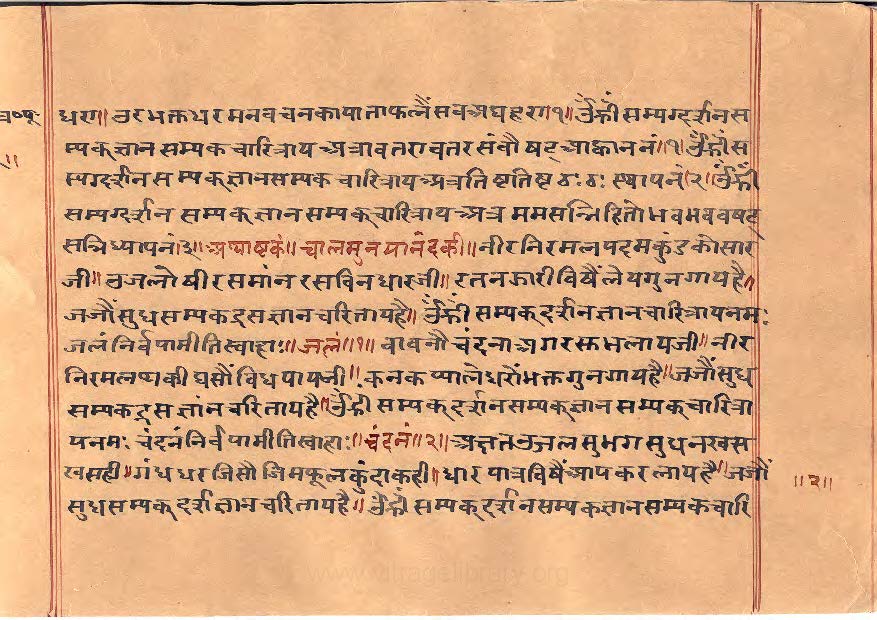 धरा॥ उर भक्त धर मनवचनकाया ताफलनैं सव अघहरा॥१॥ ॐह्रीं सम्यग्दर्शन स
म्यक् ज्ञान सम्यक चारित्राय अत्रावतरावतर संवौषट् आह्वाननं॥१॥ ॐह्रीं स
म्यग्दर्शन सम्यक् ज्ञान सम्यक चारित्राय अत्र तिष्टतिष्ट ठः ठः स्थापनं॥२॥ ॐह्रीं
सम्यग्दर्शन सम्यक् ज्ञान सम्यक् चारित्राय अत्र मम सन्निहितो भवभव वषट्
सन्निध्यापनं॥३॥ अथाष्टकं॥ चालमुनयानंदकी॥ नीर निरमल पदमकुंडको सार
जी॥ उजलो षीर समांन रस विन धारजी॥ रतन झारी विषैं लेय गुन गाय है॥
जजौं सुध सम्यक द्रस ज्ञान चरितायहै॥ ॐह्रीं सम्यक् दर्शन ज्ञान चारित्राय नमः
जलं निर्वपामीति स्वाहाः॥ जलं॥१॥ वावनौ चंदना अगरस्त भलायजी॥ नीर
निरमल थकी घसौं विध पायजी॥ कनक प्याले धरों भक्त गुन गायहै॥ जजौं सुध
सम्यक द्रस ज्ञांन चरितायहै॥ ॐह्रीं सम्यक् दर्शन सम्यक् ज्ञान सम्यक् चारित्रा
यनमः चंदनं निर्वपामीति स्वाहाः॥ चंदनं॥२॥ अक्षत उजल सुभग सुध नखस
खसही॥ गंध धर जिसौ जिम फूल कुंदा कही॥ धार पात्र विषैं आप कर लायहै॥ जजौं
सुध सम्यक् दर्श ज्ञान चरितायहै॥ ॐह्रीं सम्यक् दर्शन सम्यक ज्ञान सम्यक चारि
॥२॥